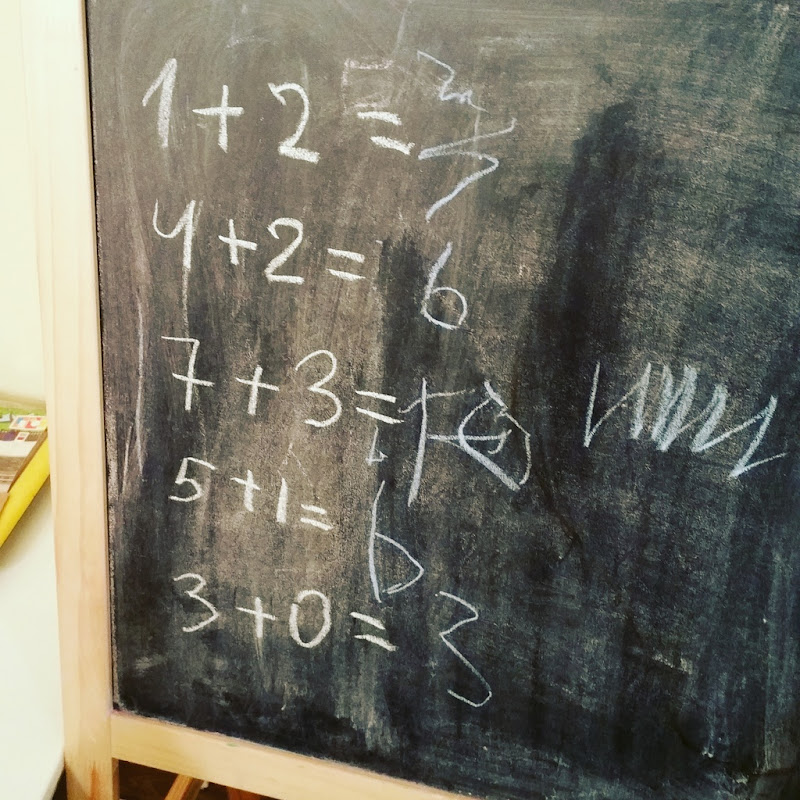 1+2=
4+2= 6
7+3=
5+1= 6
3+0= 3